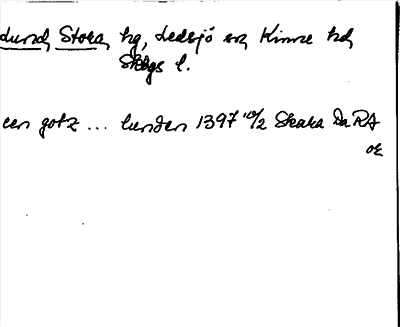 Lund, Stora, hg, Ledsjö sn, Kinne hd,
Skbgs l.
een gotz ... lunden 1397 10/2 Skara Da RA
OE